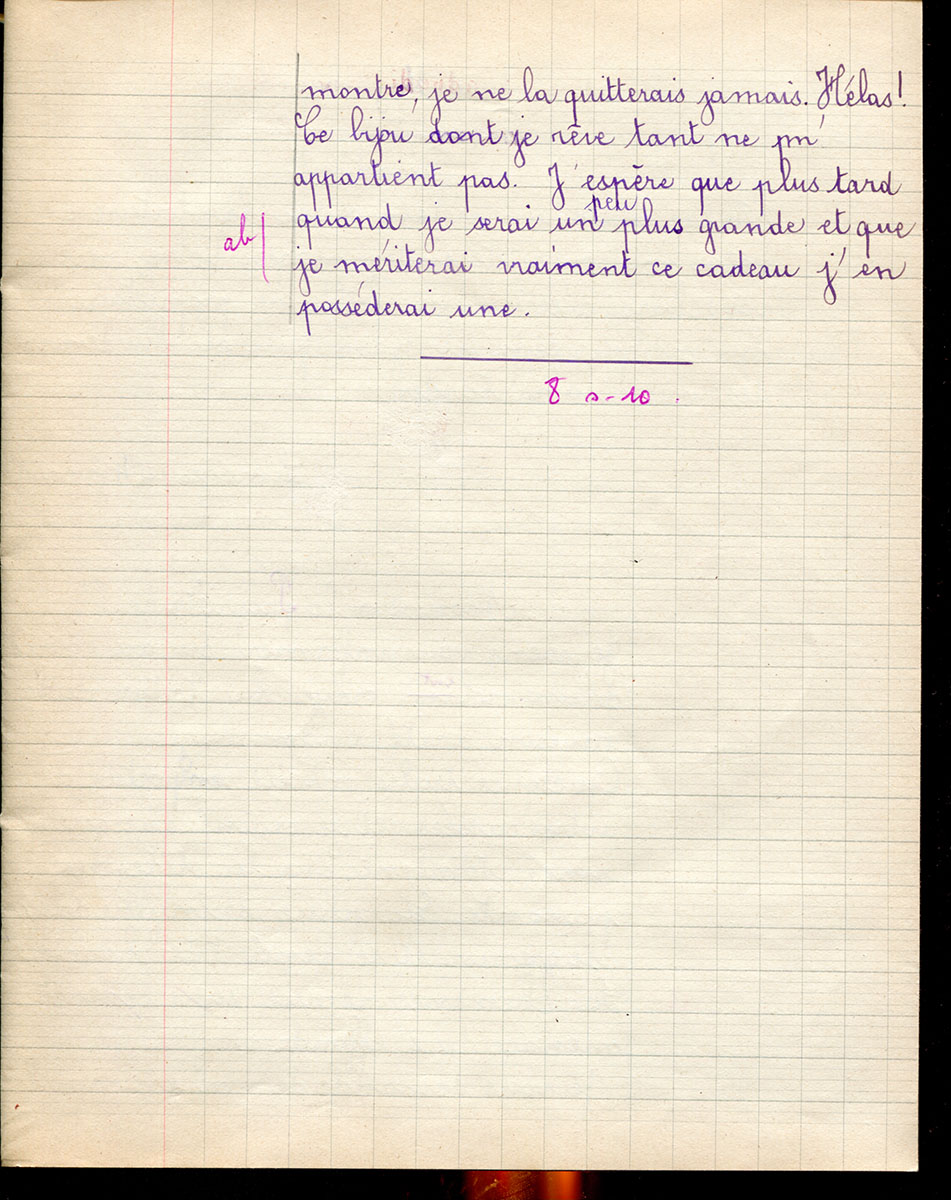 montre, je ne la quitterais jamais. Hélas!
Ce bijou dont je rêve tant ne m'
appartient pas. J'espère que plus tard
peu
quand je serai un plus grande et que
ab
je mériterai vraiment ce cadeau j'en
possèderai une.
8 s-10.